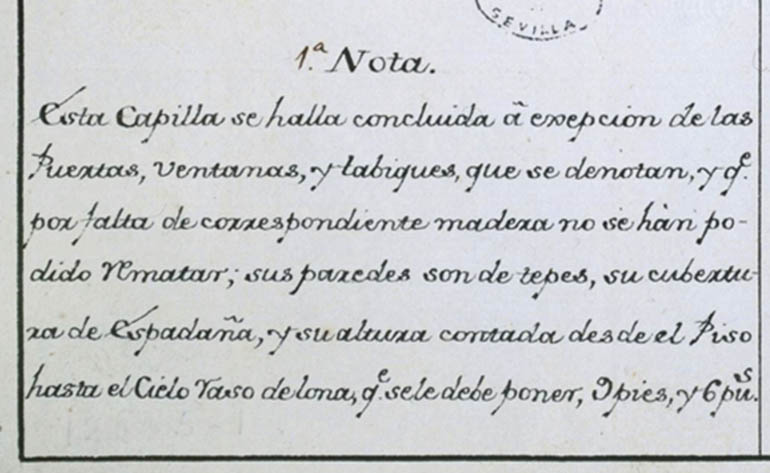 SEVILLA
1.ª Nota.
Esta Capilla se halla concluida â exepcion de las
Puertas, Ventanas, y tabiques, que se denotan, y q.e
por falta de correspondiente madera no se hàn po-
dido rematar; sus paredes son de tepes, su cubertu-
ra de Espadaña, y su altura contada desde el Piso
hasta el Cielo raso de lona, q.e se le debe poner, 9 pies, y 6 pu.s